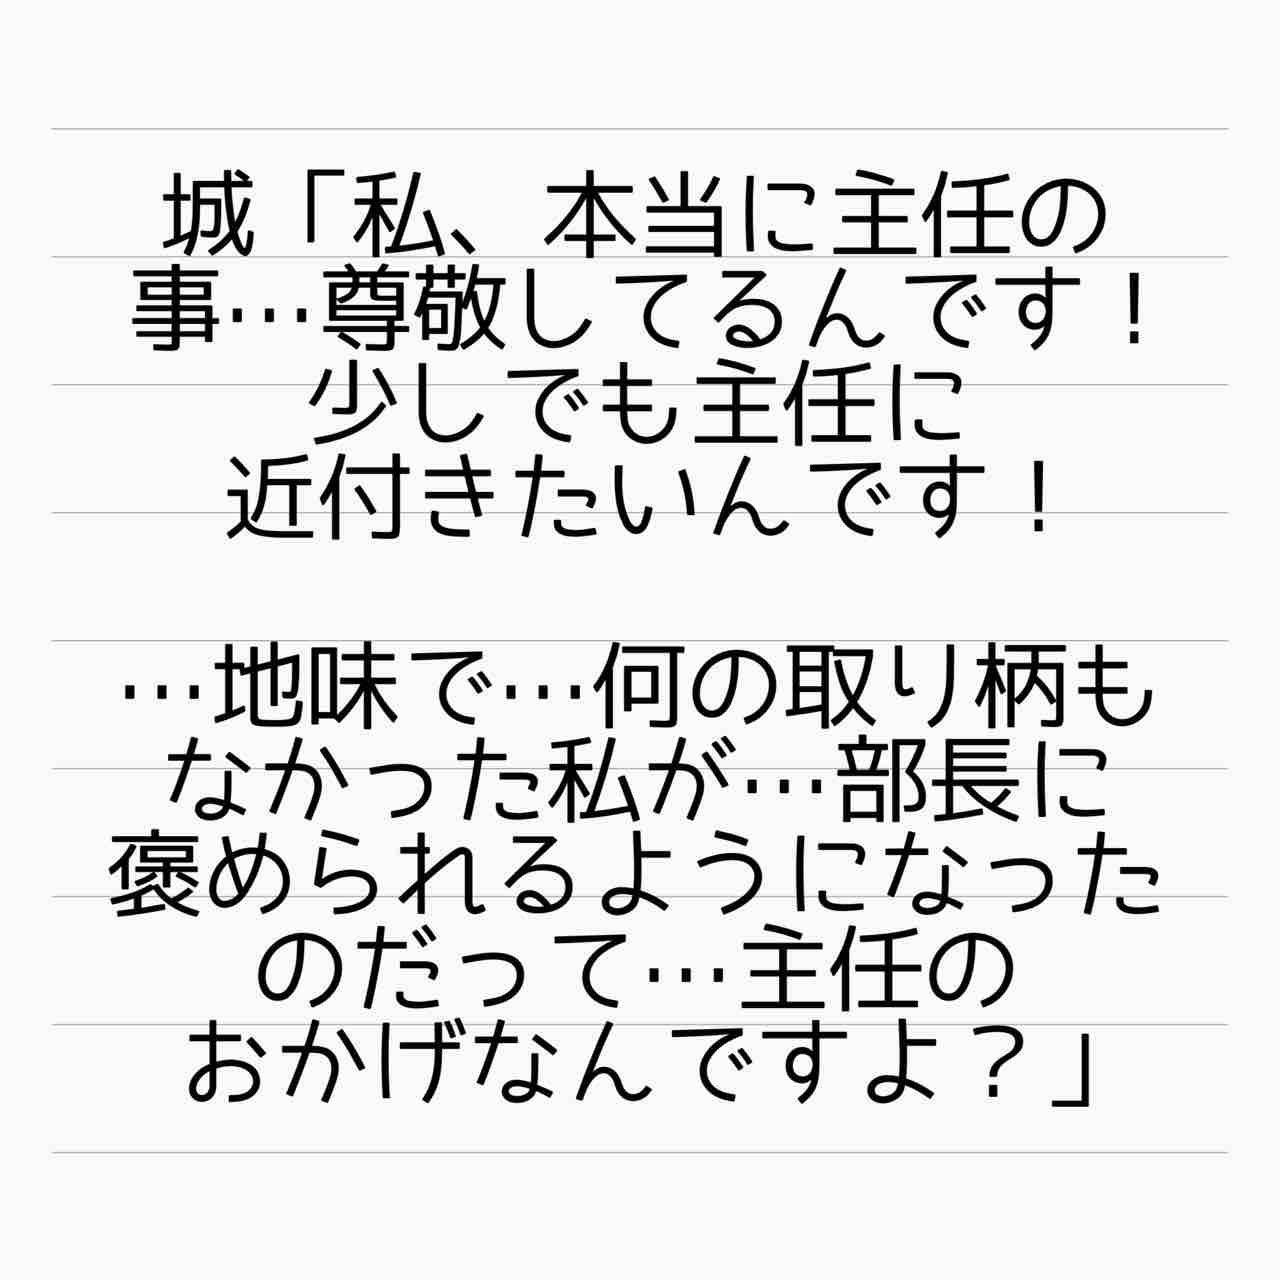 城「私、本当に主任の
事…尊敬してるんです！
少しでも主任に
近付きたいんです！
…地味で…何の取り柄も
なかった私が…部長に
褒められるようになった
のだって…主任の
おかげなんですよ？」